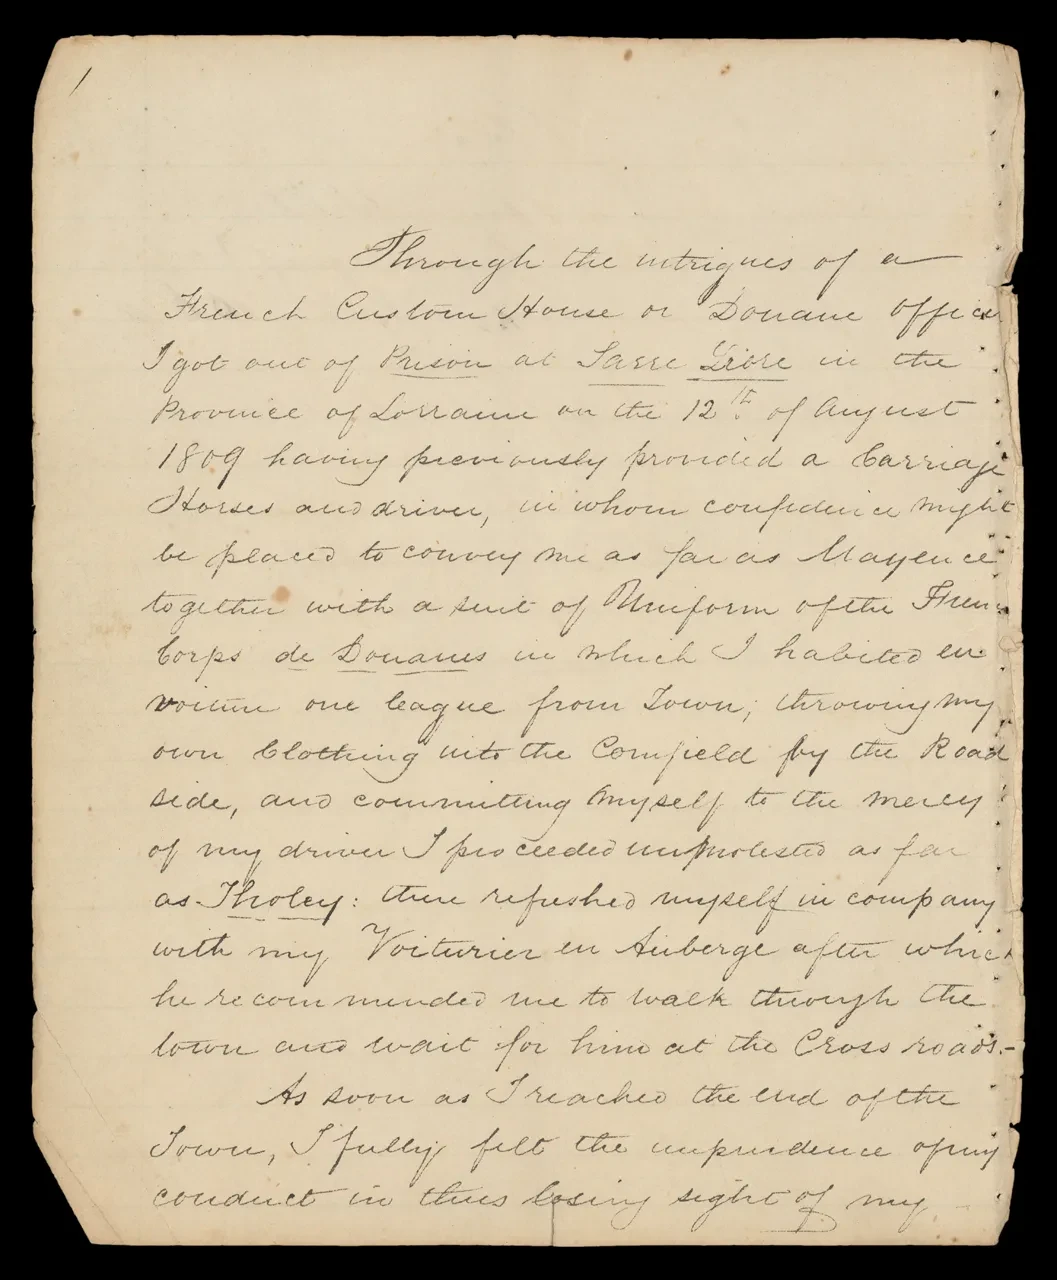 1
Through the intrigues of a
French Custom House or Douane Officer
I got out of Prison at Sarre Libre in the
Province of Lorraine on the 12th of August
1809 having previously provided a Carriage
Horses and driver, in whom confidence might
be placed to convey me as far as Mayence
together with a suit of Uniform of the Fren
Corps de Douanes in which I habited en
voiture one league from Town; throwing my
own Clothing into the Cornfield by the Road
side, and committing myself to the mercy
of my driver I proceeded unmolested as far
as Tholey: there refreshed myself in company
with my Voiturier en Auberge after which
he recommended me to walk through the
town and wait for him at the Cross roads.-
As soon as I reached the end of the
Town, I fully felt the imprudence of my
conduct in thus losing sight of my